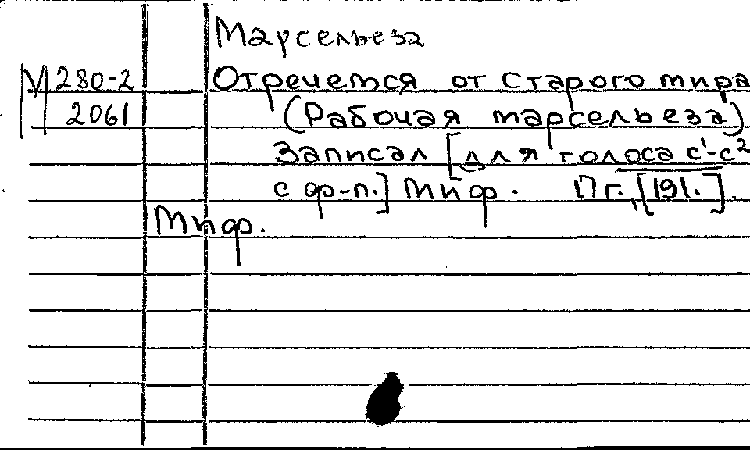 Марсельеза
М 280-2 Отречемся от старого мира
2061 (Рабочая марсельеза)
Записал [для голоса c¹-c²
с ф-п.] Миф. Пг., [191.].
Миф.